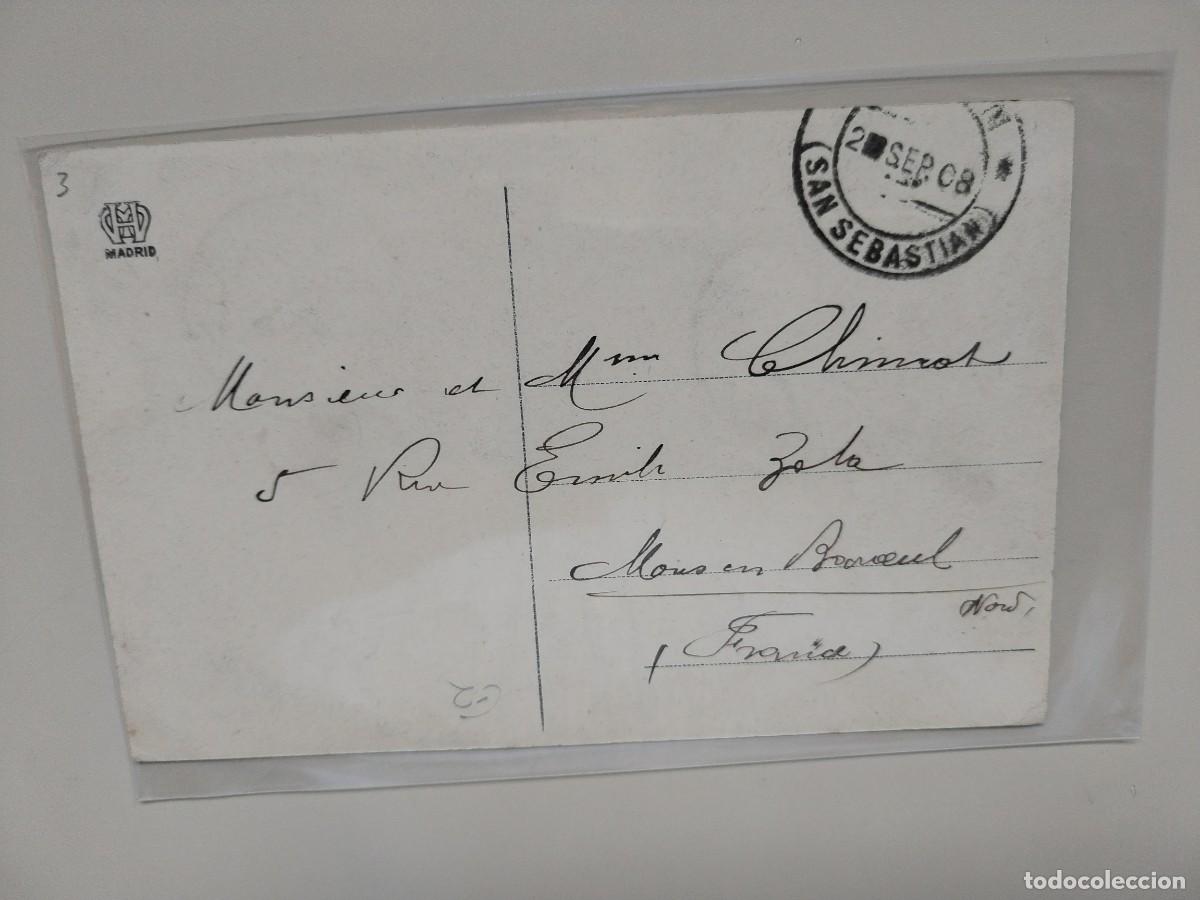 3
MADRID
2 SEP 08
(SAN SEBASTIAN)
Monsieur et Mme Chimot
5 Rue Emile Zola
Mons en Baroeul
Nord,
(France)
todocoleccion